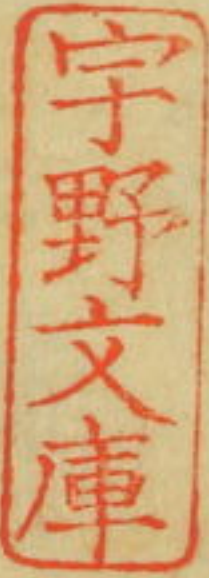 宇野文庫